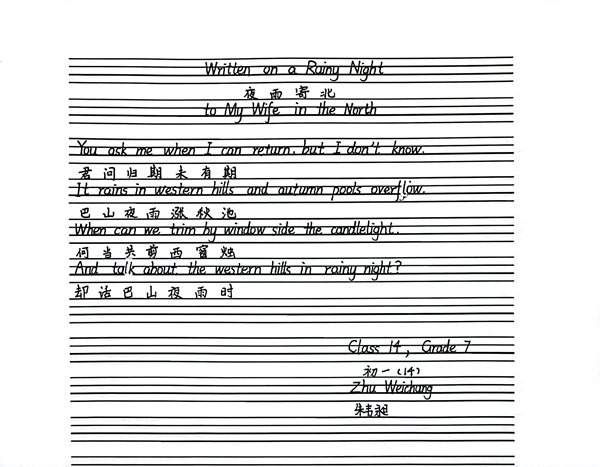 Written on a Rainy Night
夜雨寄北
to My Wife in the North
You ask me when I can return, but I don't know.
君问归期未有期
It rains in western hills and autumn pools overflow.
巴山夜雨涨秋池
When can we trim by window side the candlelight.
何当共剪西窗烛
And talk about the western hills in rainy night?
却话巴山夜雨时
Class 14, Grade 7
初一(14)
Zhu Weichang
朱韦昶